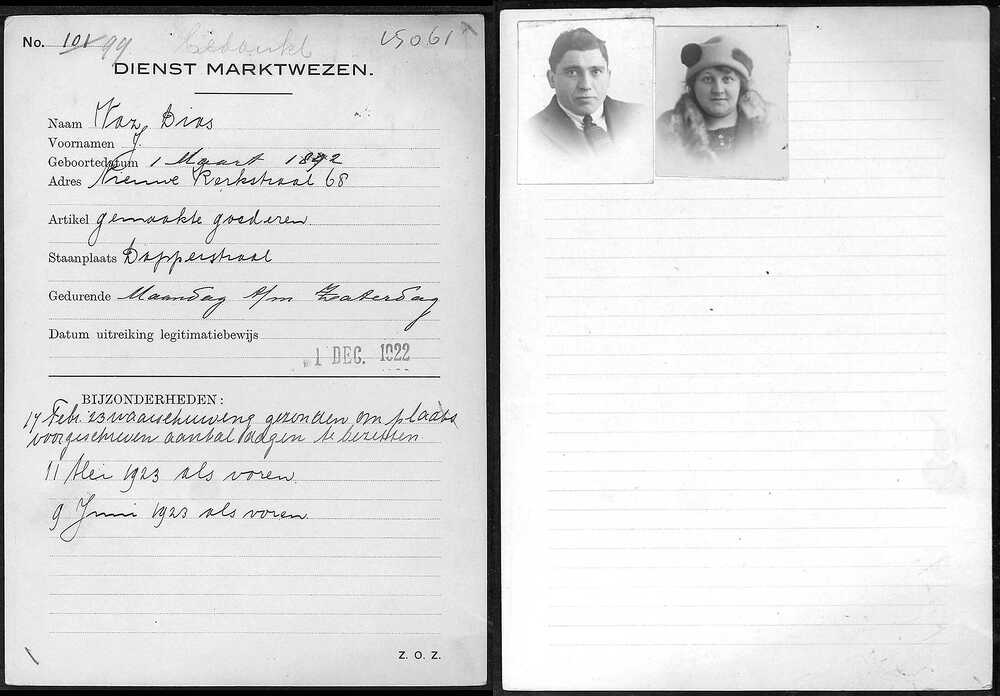 No. 101/99 Bedankt 15061
DIENST MARKTWEZEN.
Naam Vaz Dias
Voornamen J.
Geboortedatum 1 Maart 1892
Adres Nieuwe Kerkstraat 68
Artikel gemaakte goederen.
Staanplaats Dapperstraat
Gedurende Maandag t/m Zaterdag
Datum uitreiking legitimatiebewijs
1 DEC. 1922
BIJZONDERHEDEN:
17 Febr. 23 waarschuwing gezonden om plaats
voorgeschreven aantal dagen te bezetten.
11 Mei 1923 als voren.
9 Juni 1923 als voren.
Z. O. Z.